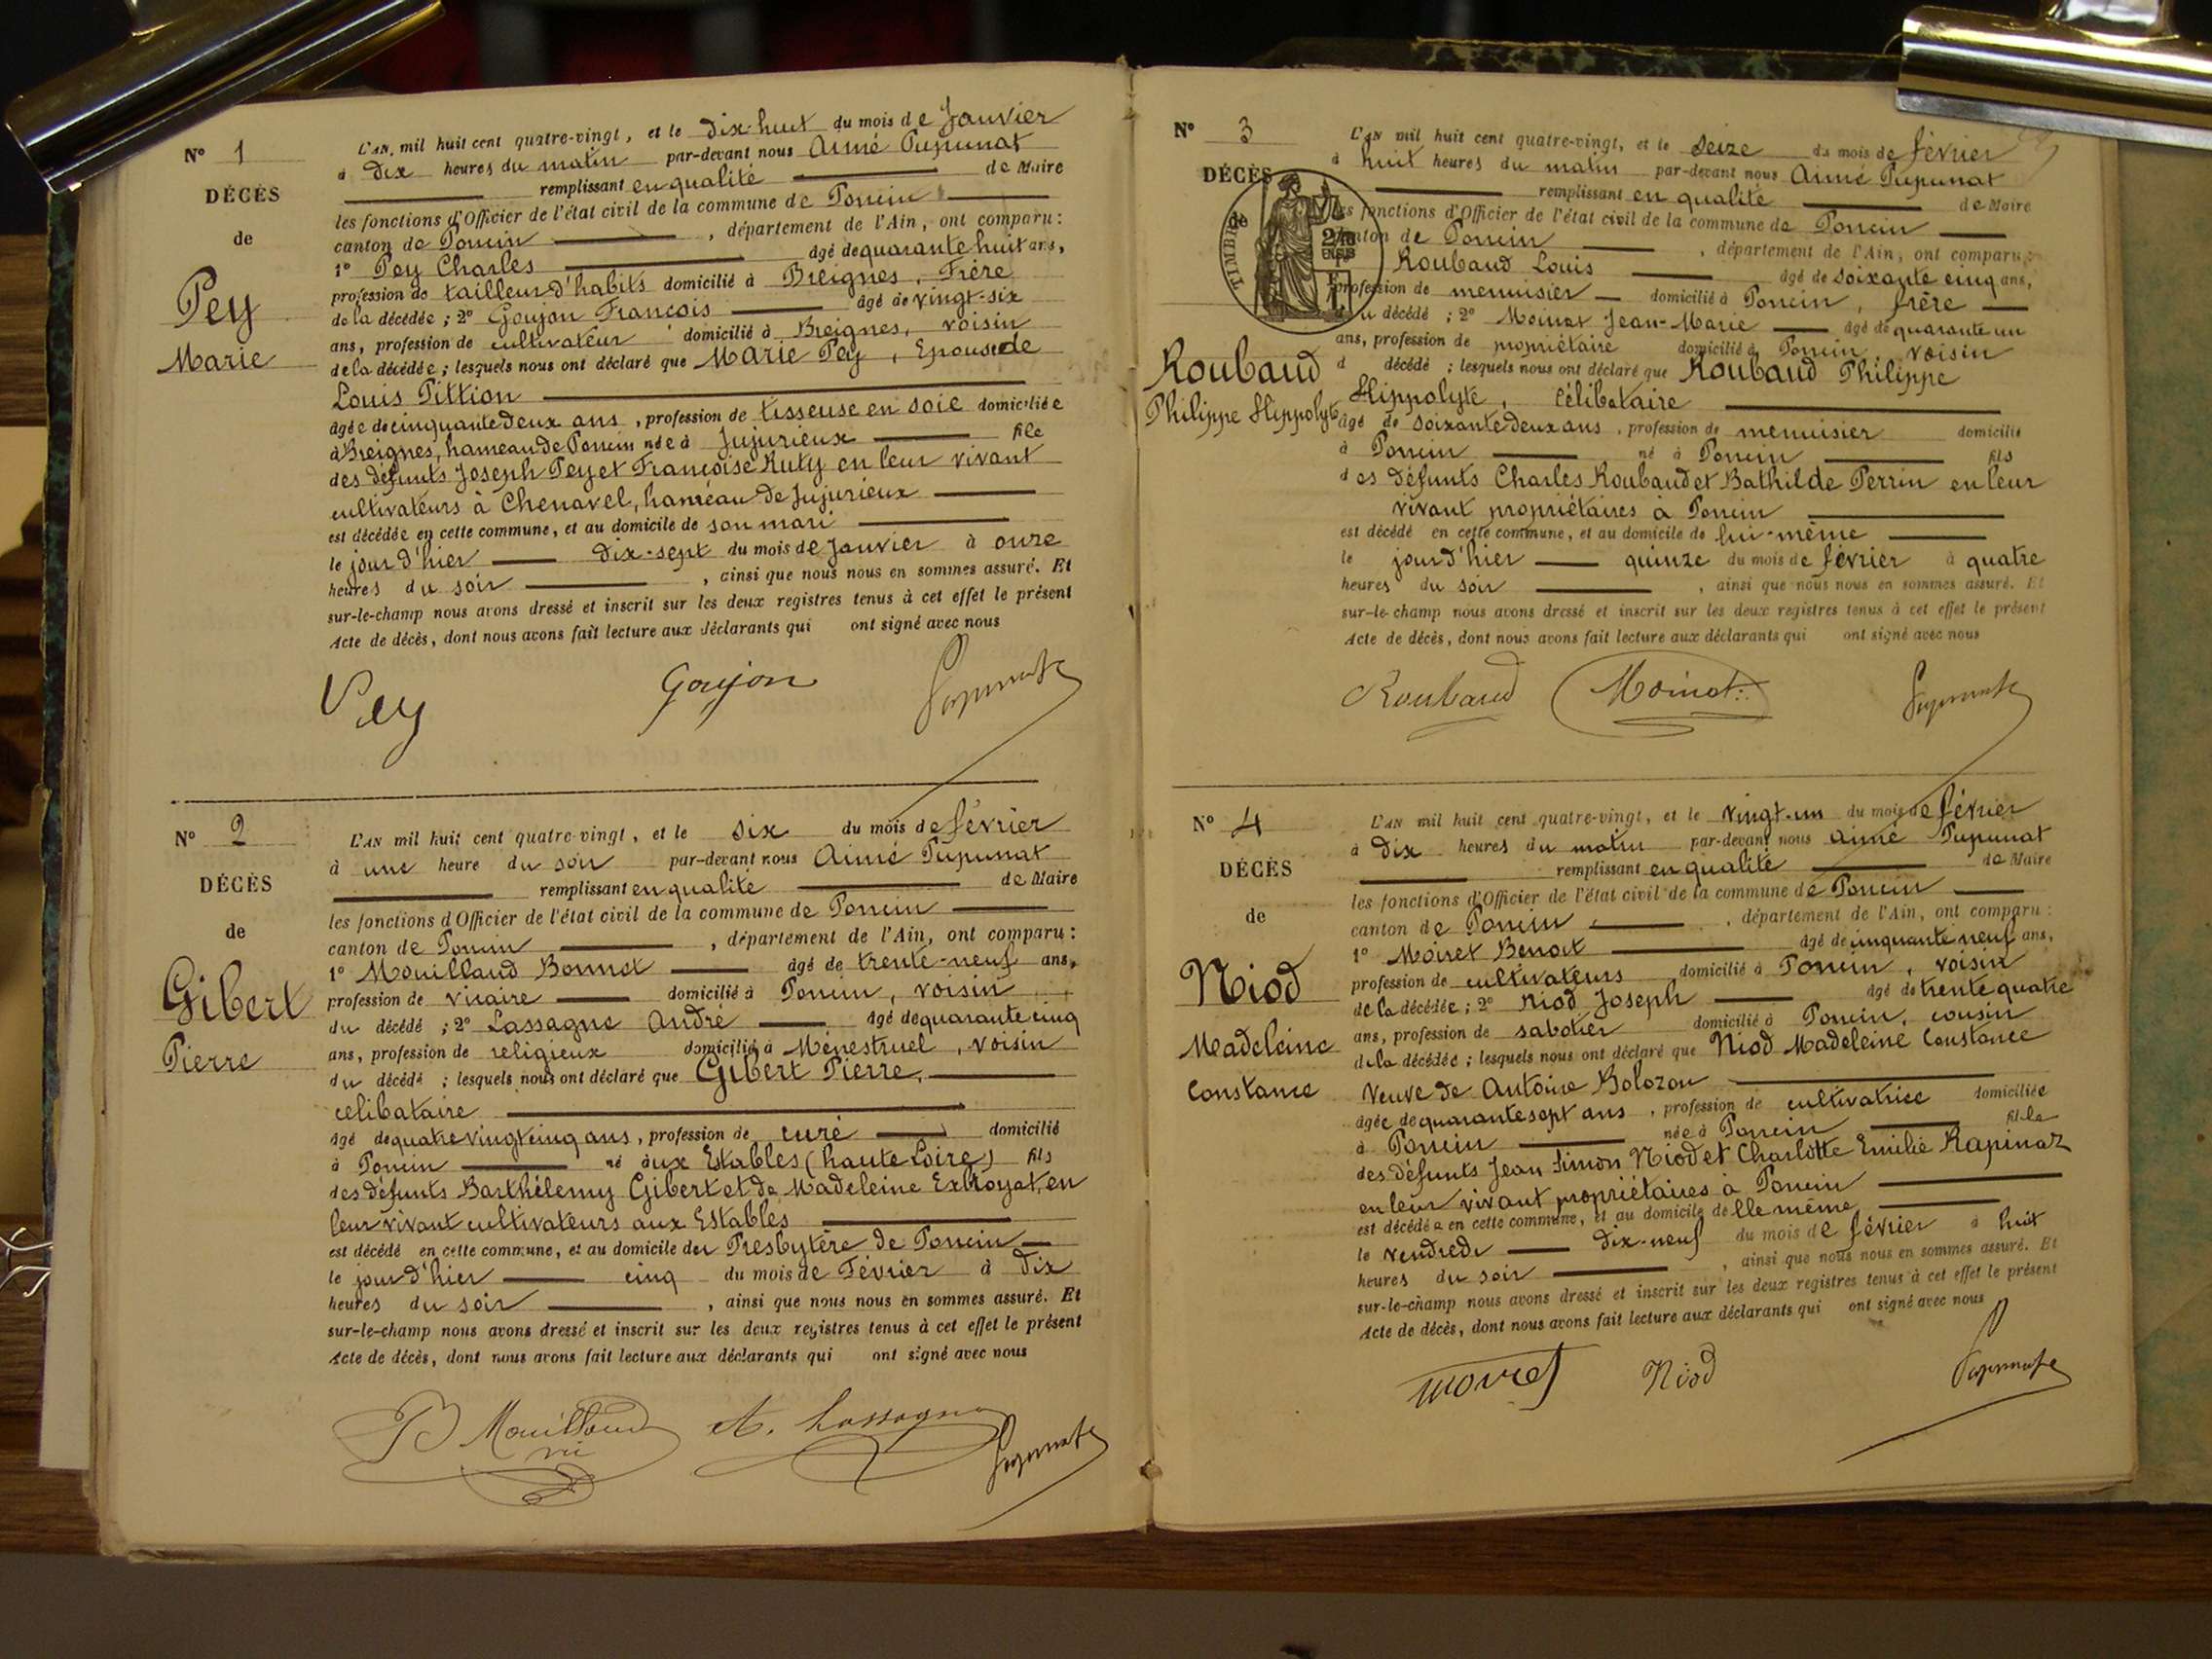 N° 1
DÉCÈS
de
Pey
Marie
L'AN mil huit cent quatre-vingt, et le dix-huit du mois de Janvier
à Dix heures du matin par-devant nous Aimé Pupunat
remplissant en qualité de Maire
les fonctions d'Officier de l'état civil de la commune de Poncin
canton de Poncin , département de l'Ain, ont comparu :
1° Pey Charles âgé de quarante huit ans,
profession de tailleur d'habits domicilié à Breignes, Frère
de la décédée ; 2° Goujon François âgé de vingt-six
ans, profession de cultivateur domicilié à Breignes, voisin
de la décédée ; lesquels nous ont déclaré que Marie Pey, Epouse de
Louis Pittion
âgée de cinquante deux ans, profession de tisseuse en soie domiciliée
à Breignes, hameau de Poncin née à Jujurieux file
des défunts Joseph Pey et Françoise Ruty en leur vivant
cultivateurs à Chenavel, hameau de Jujurieux
est décédée en cette commune, et au domicile de son mari
le jour d'hier dix-sept du mois de Janvier à onze
heures du soir , ainsi que nous nous en sommes assuré. Et
sur-le-champ nous avons dressé et inscrit sur les deux registres tenus à cet effet le présent
Acte de décès, dont nous avons fait lecture aux déclarants qui ont signé avec nous
Pey Goujon Pupunat
N° 2
DÉCÈS
de
Gibert
Pierre
L'AN mil huit cent quatre-vingt, et le six du mois de février
à une heure du soir par-devant nous Aimé Pupunat
remplissant en qualité de Maire
les fonctions d'Officier de l'état civil de la commune de Poncin
canton de Poncin , département de l'Ain, ont comparu :
1° Mouillaud Bonnet âgé de trente-neuf ans,
profession de vicaire domicilié à Poncin, voisin
du décédé ; 2° Lassagne André âgé de quarante cinq
ans, profession de religieux domicilié à Ménestruel, voisin
du décédé ; lesquels nous ont déclaré que Gibert Pierre,
célibataire
âgé de quatre vingt cinq ans, profession de curé domicilié
à Poncin né aux Estables (haute Loire) fils
des défunts Barthélemy Gibert et de Madeleine Exbroyat, en
leur vivant cultivateurs aux Estables
est décédé en cette commune, et au domicile du Presbytère de Poncin
le jour d'hier cinq du mois de Février à dix
heures du soir , ainsi que nous nous en sommes assuré. Et
sur-le-champ nous avons dressé et inscrit sur les deux registres tenus à cet effet le présent
Acte de décès, dont nous avons fait lecture aux déclarants qui ont signé avec nous
B Mouillaud A. Lassagne Pupunat
N° 3
DÉCÈS
de
TIMBRE
Roubaud
Philippe Hippolyte
L'AN mil huit cent quatre-vingt, et le seize du mois de février
à huit heures du matin par-devant nous Aimé Pupunat
remplissant en qualité de Maire
les fonctions d'Officier de l'état civil de la commune de Poncin
canton de Poncin , département de l'Ain, ont comparu :
Roubaud Louis âgé de soixante cinq ans,
profession de menuisier domicilié à Poncin, frère
du décédé ; 2° Moinat Jean-Marie âgé de quarante un
ans, profession de propriétaire domicilié à Poncin, voisin
d décédé ; lesquels nous ont déclaré que Roubaud Philippe
Hippolyte, célibataire
âgé de soixante deux ans, profession de menuisier domicilié
à Poncin né à Poncin fils
des défunts Charles Roubaud et Bathilde Perrin en leur
vivant propriétaires à Poncin
est décédé en cette commune, et au domicile de lui-même
le jour d'hier quinze du mois de février à quatre
heures du soir , ainsi que nous nous en sommes assuré. Et
sur-le-champ nous avons dressé et inscrit sur les deux registres tenus à cet effet le présent
Acte de décès, dont nous avons fait lecture aux déclarants qui ont signé avec nous
Roubaud Moinat Pupunat
N° 4
DÉCÈS
de
Niod
Madeleine
Constance
L'AN mil huit cent quatre-vingt, et le vingt-un du mois de février
à dix heures du matin par-devant nous Aimé Pupunat
remplissant en qualité de Maire
les fonctions d'Officier de l'état civil de la commune de Poncin
canton de Poncin , département de l'Ain, ont comparu :
1° Moiret Benoit âgé de cinquante neuf ans,
profession de cultivateurs domicilié à Poncin, voisin
de la décédée ; 2° Niod Joseph âgé de trente quatre
ans, profession de sabotier domicilié à Poncin, cousin
de la décédée ; lesquels nous ont déclaré que Niod Madeleine Constance
Veuve de Antoine Bolozon
âgée de quarante sept ans, profession de cultivatrice domiciliée
à Poncin née à Poncin fille
des défunts Jean Simon Niod et Charlotte Emilie Rapinaz
en leur vivant propriétaires à Poncin
est décédée en cette commune, et au domicile d'elle même
le vendredi dix-neuf du mois de février à huit
heures du soir , ainsi que nous nous en sommes assuré. Et
sur-le-champ nous avons dressé et inscrit sur les deux registres tenus à cet effet le présent
Acte de décès, dont nous avons fait lecture aux déclarants qui ont signé avec nous
Moiret Niod Pupunat